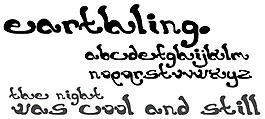 earthling.
abcdefghijklm
nopqrstuvwxyz
the night
was cool and still